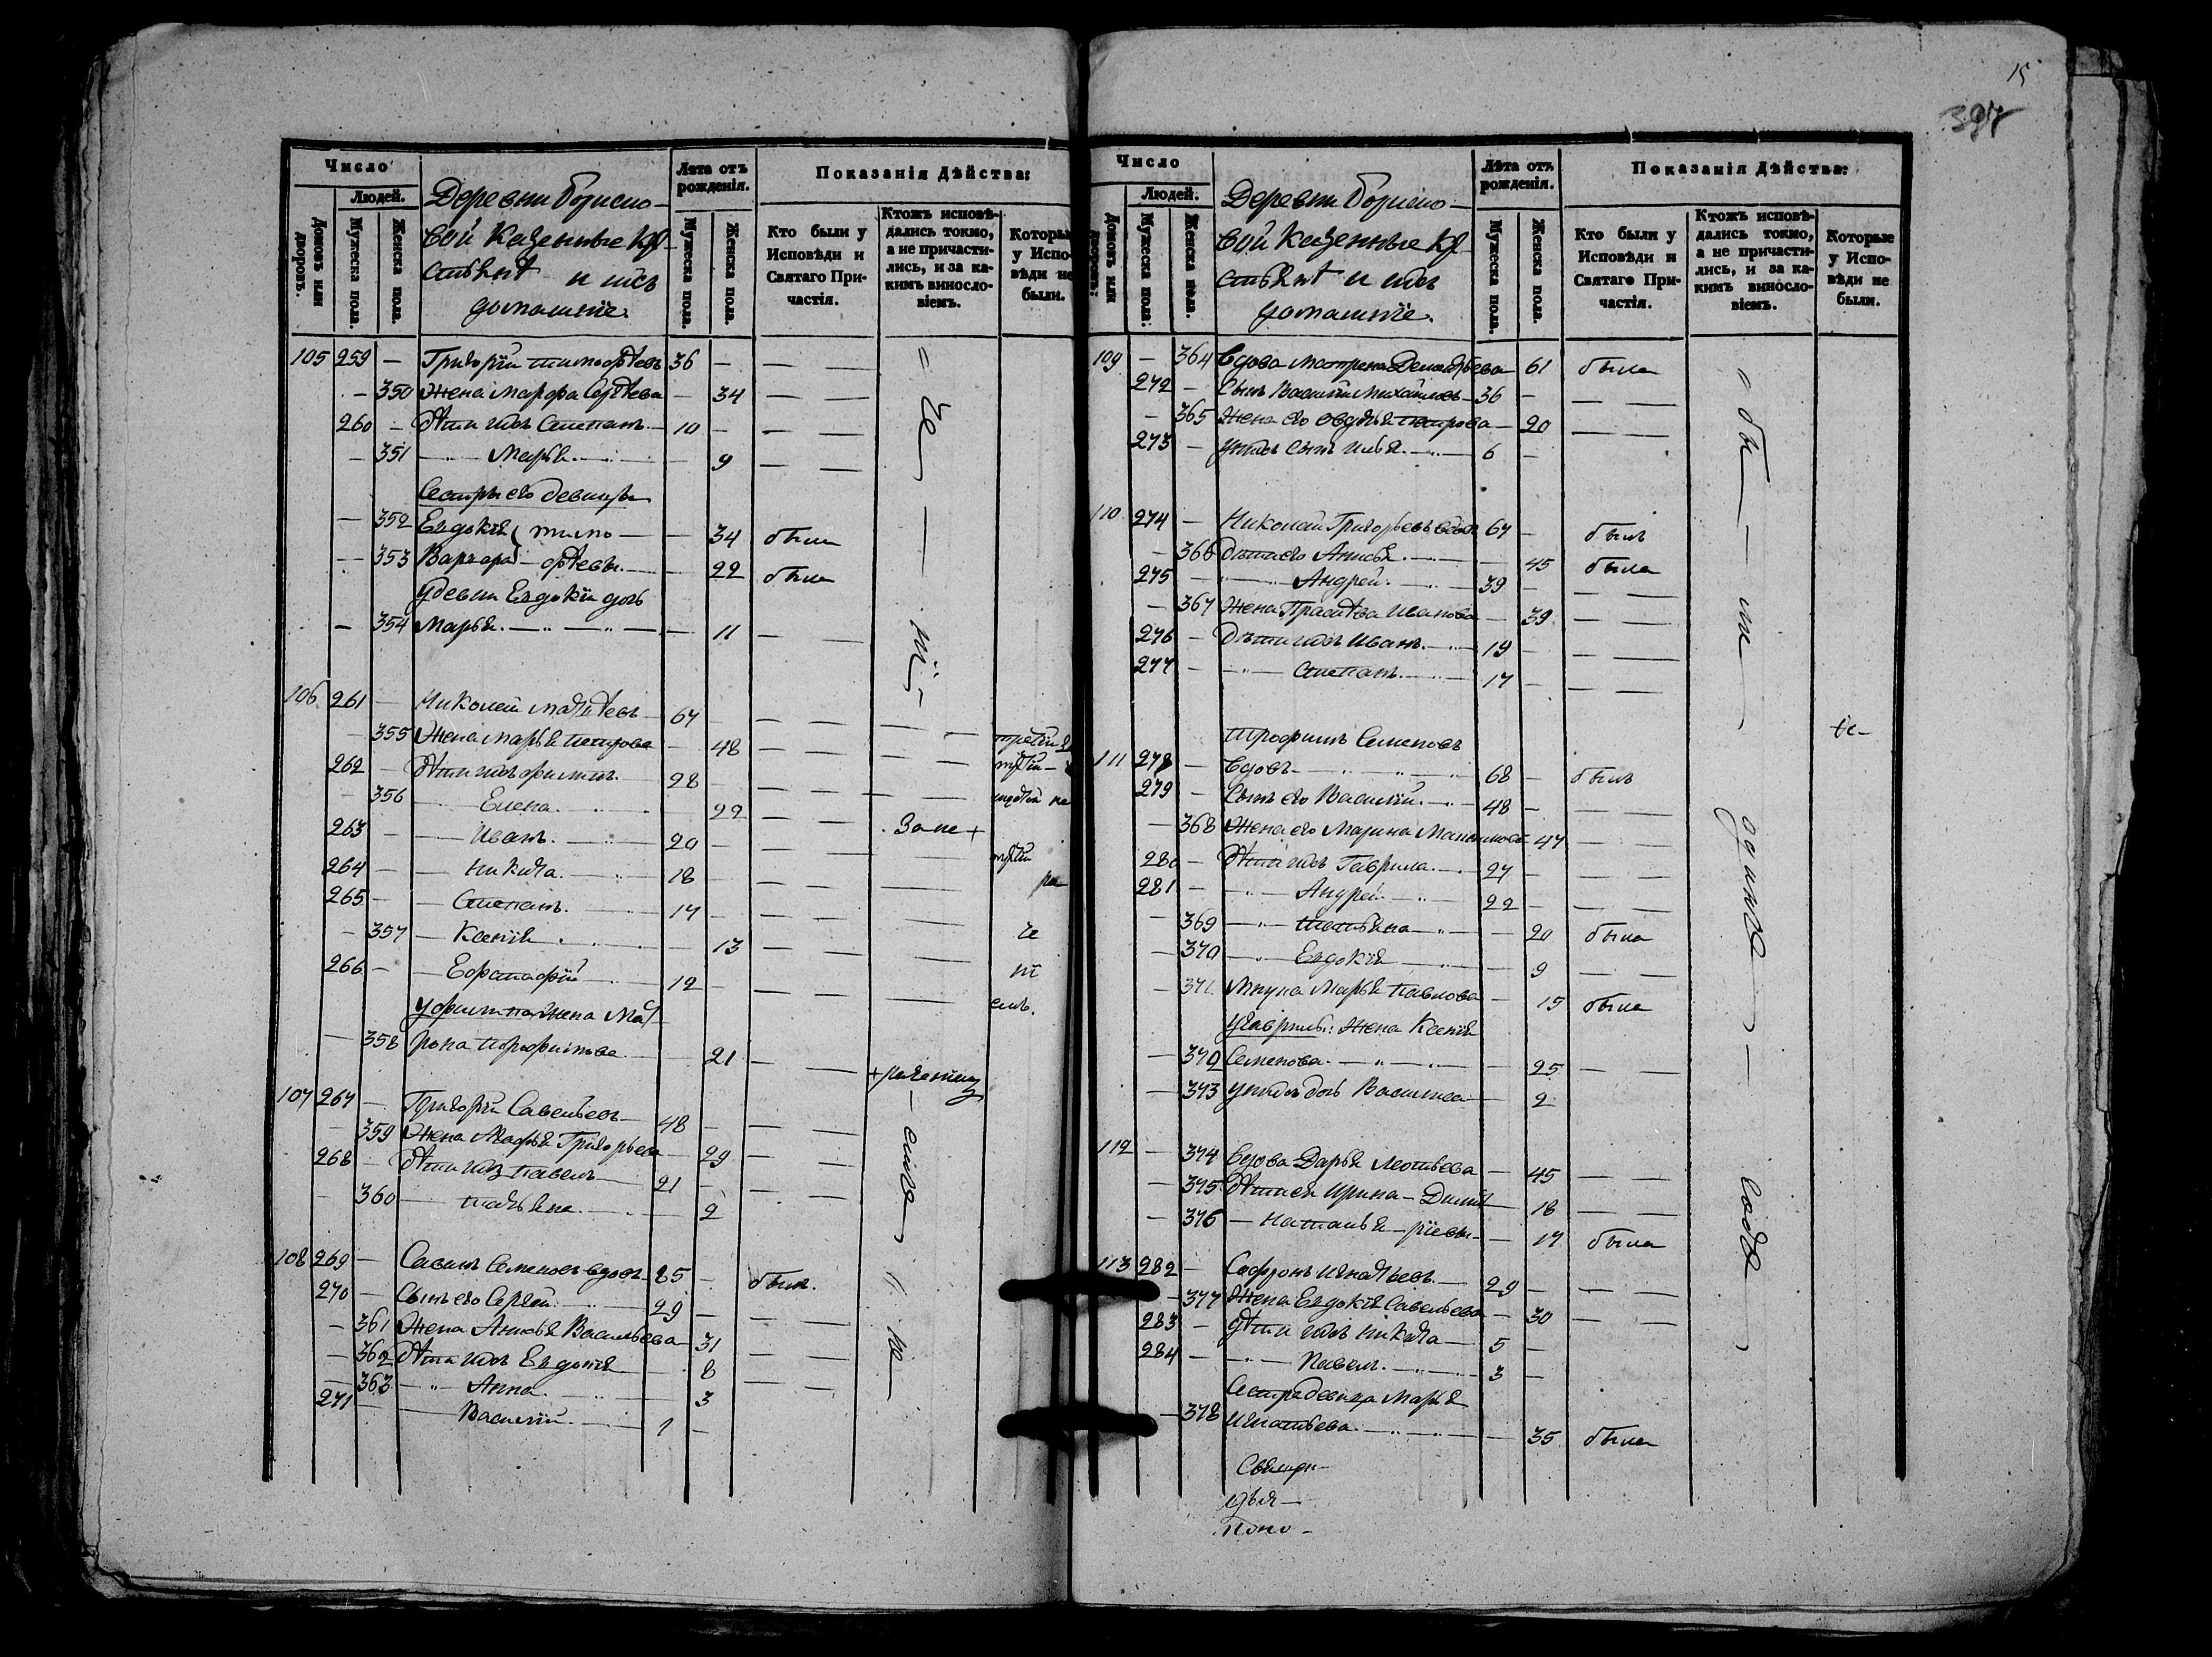 15
397
Число
Людей.
Домовъ или дворовъ.
Мужеска пола.
Женска пола.
Деревни Борисо-
вой Казенные кр-
стьянѣ и ихъ
домашніе.
Лѣта отъ рожденія.
Мужеска пола.
Женска пола.
Показанія Дѣйства:
Кто были у Исповѣди и Святаго Причастія.
Ктожъ исповѣдались токмо, а не причастились, и за какимъ винословіемъ.
Которые у Исповѣди не были.
105 259 — Григорій Тимофѣевъ 36 — — —
— 350 Жена Марфа Сергѣева — 34 — —
260 — Дѣти ихъ Степанъ — 10 — — —
— 351 — Марья — 9 — —
Сестры его девицы
— 352 Евдокія тимо- — 34 была
— 353 Варвара фѣевы — 22 была
у девки Евдокіи дочь
— 354 Марья — 11 — —
106 261 — Николай Матвѣевъ 67 — — —
— 355 Жена Марья Петрова — 48 — —
262 — Дѣти ихъ Филиппъ 28 — — —
356 Елена — 22 — —
263 — Иванъ 20 — За не +
264 — Никита 18 — — —
265 — Степанъ 17 — — —
— 357 — Ксенія — 13 — —
266 — Евстафій 12 — — —
у Филиппа жена Мат-
— 358 рона Трофимова 21 — —
+ раченіемъ
107 267 — Григорій Савельевъ 48 — — —
— 359 Жена Марья Григорьева — 29 — —
268 — Дѣти ихъ Павелъ 21 — — —
360 — Татьяна — 2
108 269 — Савелъ Семеновъ вдовъ 85 — былъ.
270 — Сынъ его Сергѣй 29 — — —
— 361 Жена Анисья Васильева 31 — —
— 362 Дѣти ихъ Евдокія 8 — —
— 363 — Анна 3
271 — Василій 1 —
Число
Людей.
Домовъ или дворовъ:
Мужеска пола:
Женска пола.
Деревни Борисо-
вой Казенные кр-
стьянѣ и ихъ
домашніе.
Лѣта отъ рожденія.
Мужеска пола.
Женска пола.
Показанія Дѣйства:
Кто были у Исповѣди и Святаго Причастія.
Ктожъ исповѣдались токмо, а не причастились, и за какимъ винословіемъ.
Которые у Исповѣди не были.
109 — 364 Вдова Матрена Деметьева 61 была
272 — Сынъ Василій Михайловъ 36 — — —
— 365 Жена его Овдотья Петрова — 20 — —
273 — у нихъ сынъ Илья 6 —
110 274 — Николай Григорьевъ вдовъ 67 — былъ
— 366 Дѣти его Анисья — 45 была
275 — Андрей 39 — — —
— 367 Жена Прасковья Иванова — 39 — —
276 — Дѣти ихъ Иванъ 19 — — —
277 — Степанъ 17 — — —
Трофимъ Семеновъ
111 278 — Вдовъ 68 — былъ
279 — Сынъ его Василій 48 — — —
— 368 Жена его Марина Максимова 47 — —
280 — Дѣти ихъ Гаврила 27 — — —
281 — Андрей 22 — — —
— 369 — Татьяна — 20 была
— 370 — Евдокія — 9 — —
— 371 Внука Марья Павлова — 15 была
у Гаврилы: Жена Ксенія
— 372 Семенова — 25 — —
— 373 у нихъ дочь Василиса — 2
112 — 374 Вдова Дарья Леонтьева — 45 — —
— 375 Дѣти ея Ирина — Димит- 18 — —
— 376 — Наталья — ріевы — 17 была
113 282 — Софронъ Игнатьевъ 29 — — —
— 377 Жена Евдокія Савельева — 30 — —
283 — Дѣти ихъ Никита 5 —
284 — Павелъ 3 —
Сестра девица Марья
— 378 Игнатьева — 35 была
Священ-
Дья-
Поно-